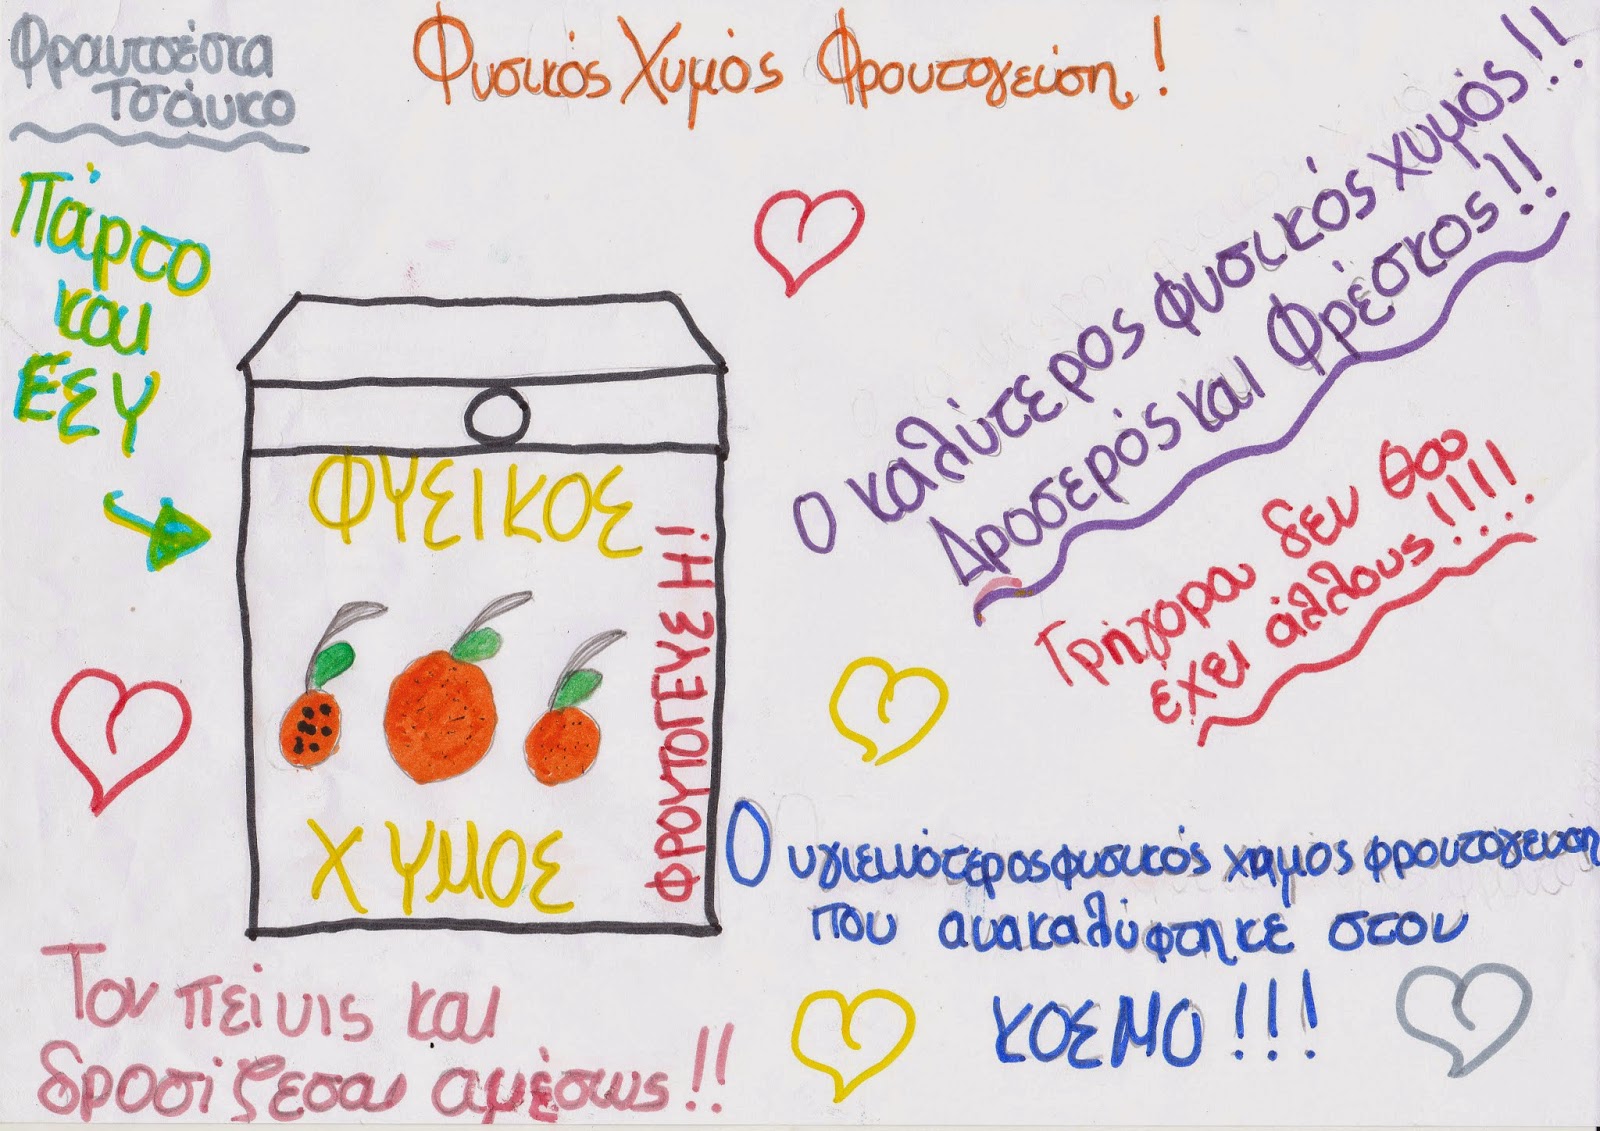 Φραντσέσκα
Τσάνκο
Φυσικός Χυμός Φρουτογεύση!
Πάρτο
και
ΕΣΥ
Ο καλύτερος φυσικός χυμός!!
Δροσερός και Φρέσκος!!
Γρήγορα δεν θα
έχει άλλους!!!!
ΦΥΣΙΚΟΣ
ΦΡΟΥΤΟΓΕΥΣΗ!
ΧΥΜΟΣ
Ο υγιεινότερος φυσικός χυμος φρουτογευση
που ανακαλύφτηκε στον
ΚΟΣΜΟ!!!
Τον πείνις και
δροσίζεσαι αμέσως!!